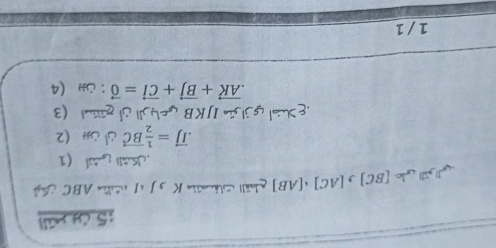 التمرين 5:
ليكن ABC مثلثا، I و J و K منتصفات الأضلاع [AB]، [AC] و [BC] على التوالي
1) أنشئ الشكل.
2) بين أن $\overrightarrow{IJ} = \frac{1}{2}\overrightarrow{BC}$.
3) استنتج أن الرباعي IJKB متوازي أضلاع.
4) بين : $\overrightarrow{AK} + \overrightarrow{BJ} + \overrightarrow{CI} = \overrightarrow{0}$.
1 / 1